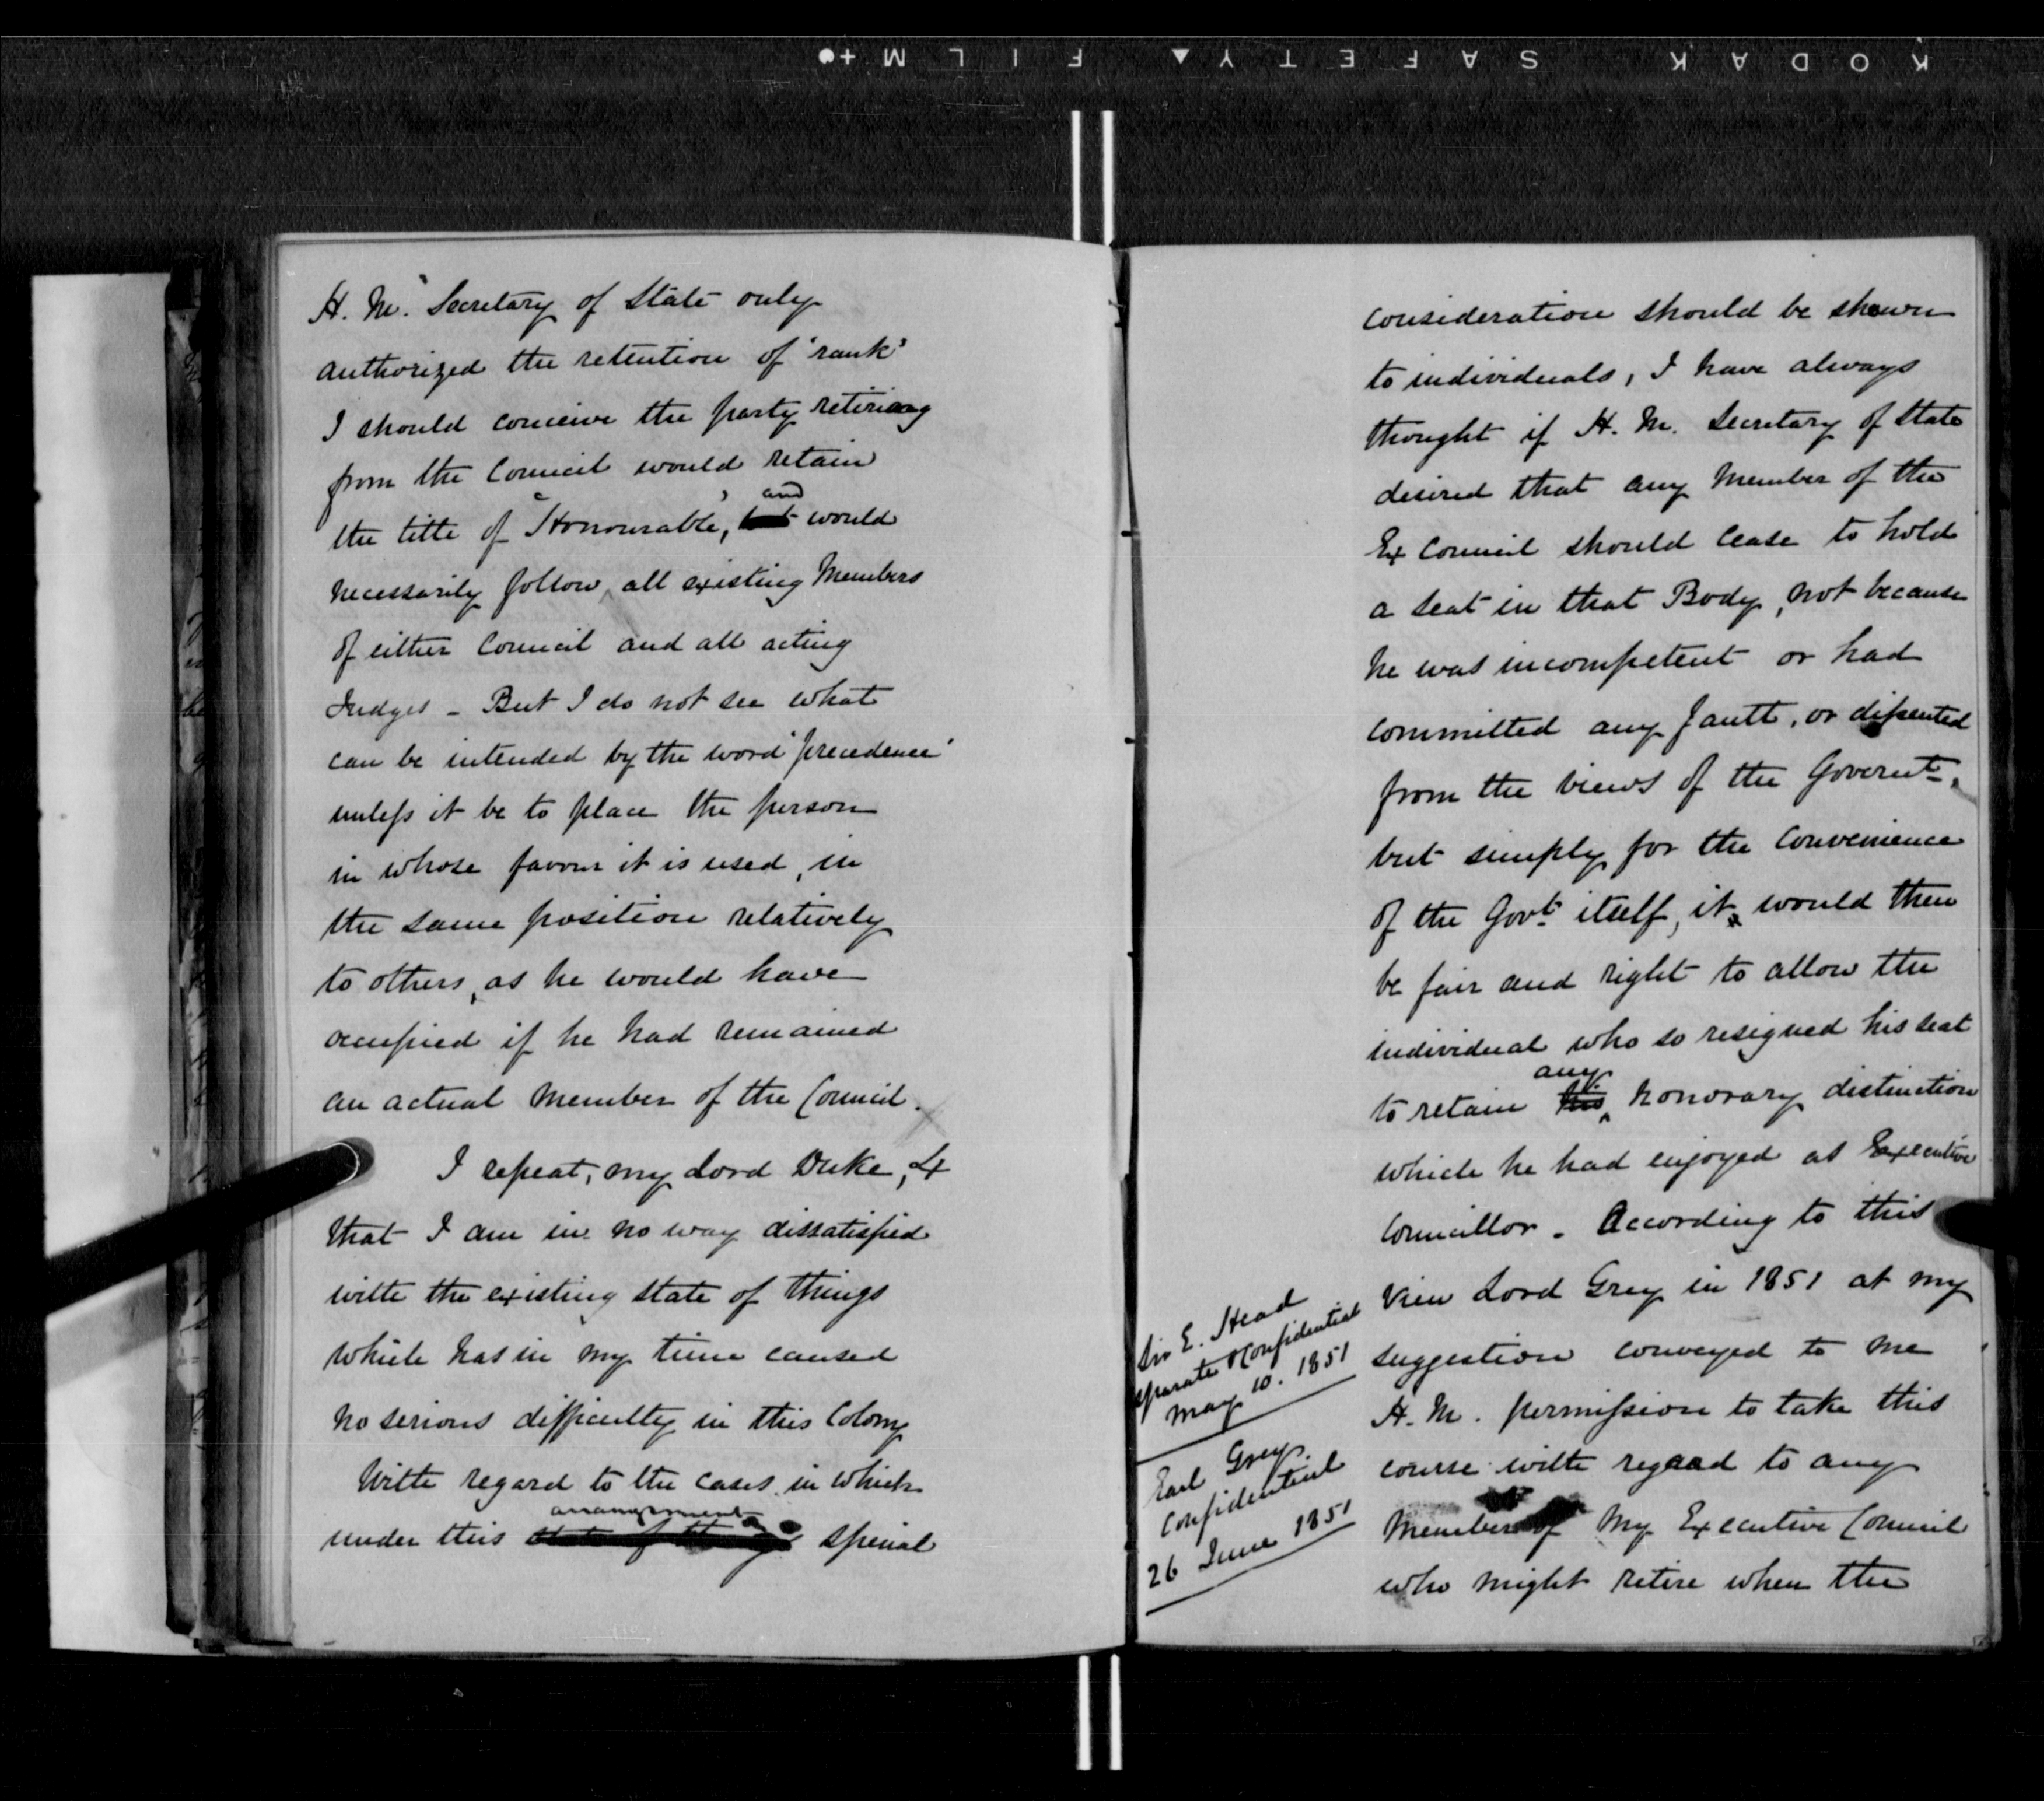 KODAK SAFETY▲ FILM+●
H. M. Secretary of State only
authorized the retention of 'rank'
I should conceive the party retiring
from the Council would retain
the title of "Honourable", and would
necessarily follow, all existing Members
of either Council and all acting
Judges - But I do not see what
can be intended by the word 'precedence'
unless it be to place the person
in whose favour it is used, in
the same position relatively
to others, as he would have
occupied if he had remained
an actual Member of the Council.
I repeat, my Lord Duke,
that I am in no way dissatisfied
with the existing state of things
which has in my time caused
no serious difficulty in this Colony
With regard to the cases in which
arrangement
under this state of things special
consideration should be shewn
to individuals, I have always
thought if H. M. Secretary of State
desired that any Member of the
Ex Council should cease to hold
a seat in that Body, not because
he was incompetent or had
committed any fault, or dissented
from the views of the Governt.
but simply for the convenience
of the Govt. itself, it would then
be fair and right to allow the
individual who so resigned his seat
any
to retain his honorary distinction
which he had enjoyed as Executive
Councillor. According to this
View Lord Grey in 1851 at my
suggestion conveyed to me
H. M. permission to take this
course with regard to any
Member of My Executive Council
who might retire when the
Sir E. Head
separate & Confidential
May 10. 1851
Earl Grey.
Confidential
26 June 1851